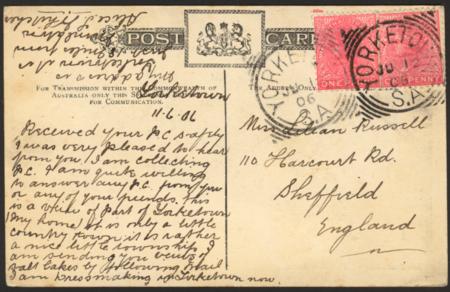 POST CARD
FOR TRANSMISSION WITHIN THE COMMONWEALTH OF
AUSTRALIA ONLY THIS SPACE MAY BE USED
FOR COMMUNICATION.
my address is
Yorketown
11.6.06
Received your P.C. safely
I was very pleased to hear
from you, I am collecting
P.C. I am quite willing
to answer any P.C. from you
or any of your friends, this
is a view of Part of Yorketown
(My home) it is only a little
country town it is rather
a nice little township, I
am sending you views of
Salt Lakes by following mail
I am Dressmaking in Yorketown now.
Miss Lilian Russell
110 Harcourt Rd.
Sheffield
England
YORKETOWN
06
S.A
YORKETOWN
JU 12
06
S.A
ONE PENNY